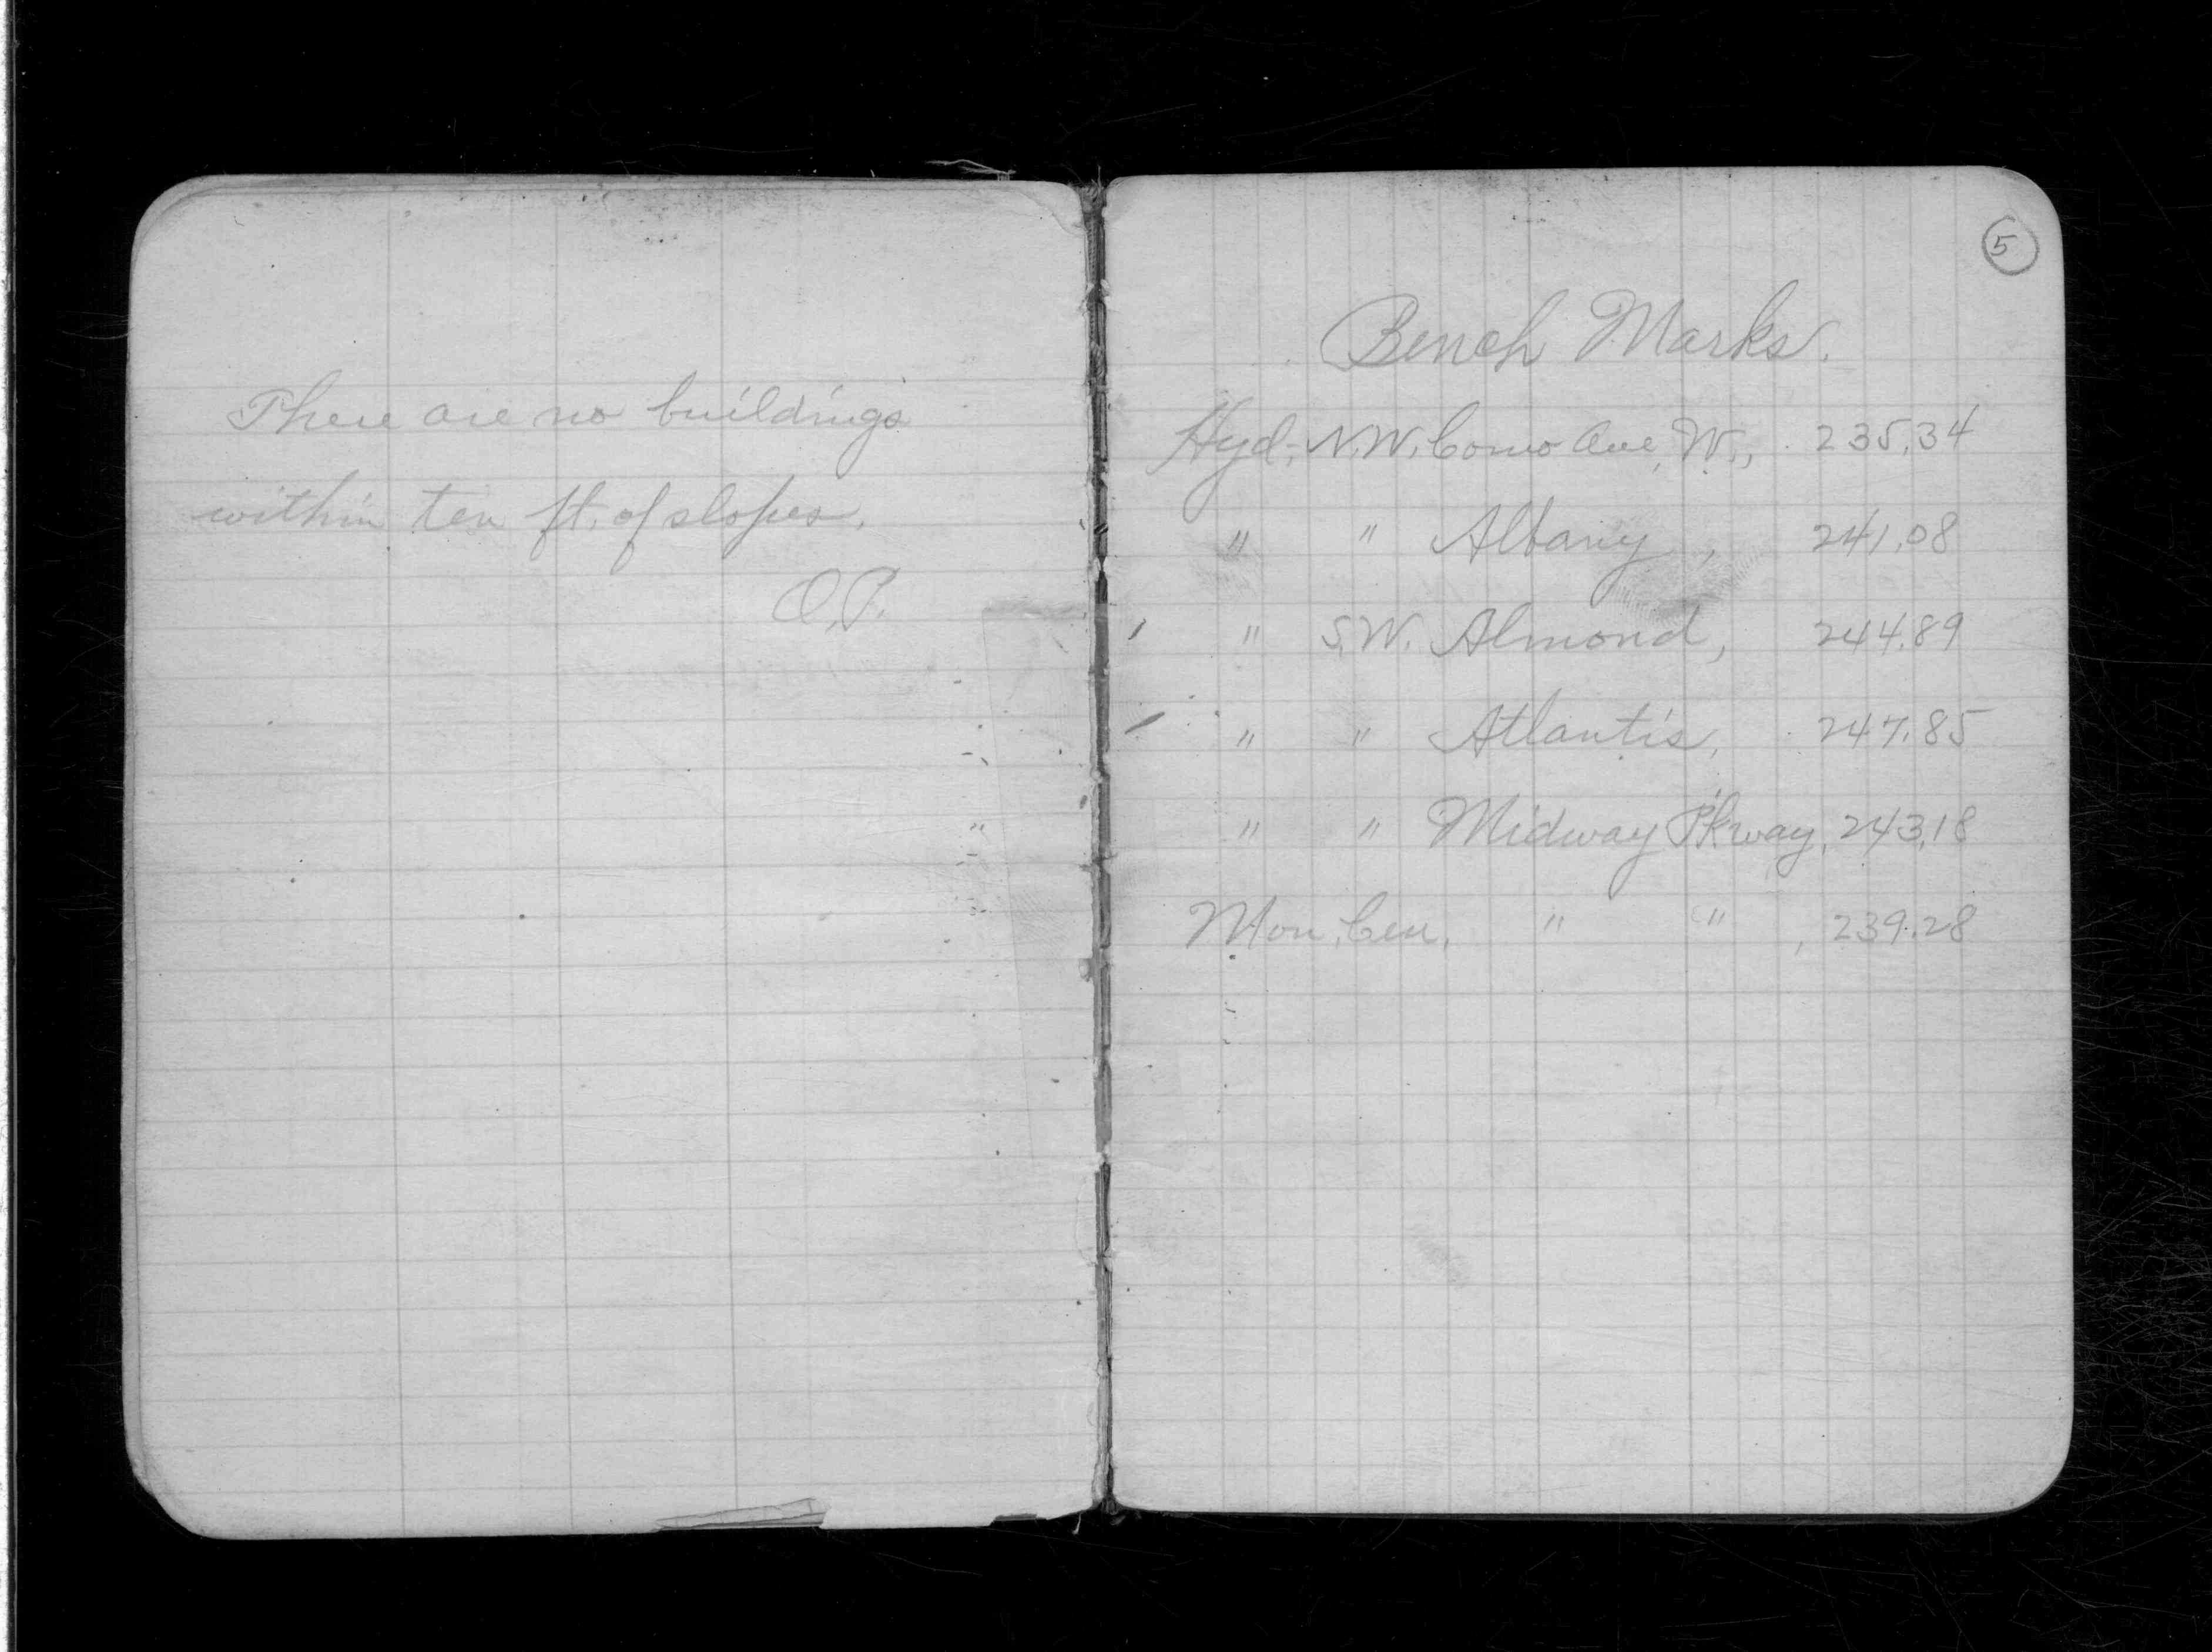 There are no buildings
within ten ft. of slopes.
O.P.
5
Bench Marks.
Hyd. N.W. Como Ave. W., 235.34
" " Albany, 241.08
" S.W. Almond, 244.89
" " Atlantis, 247.85
" " Midway Pkway, 243.18
Mon. Cen. " " , 239.28